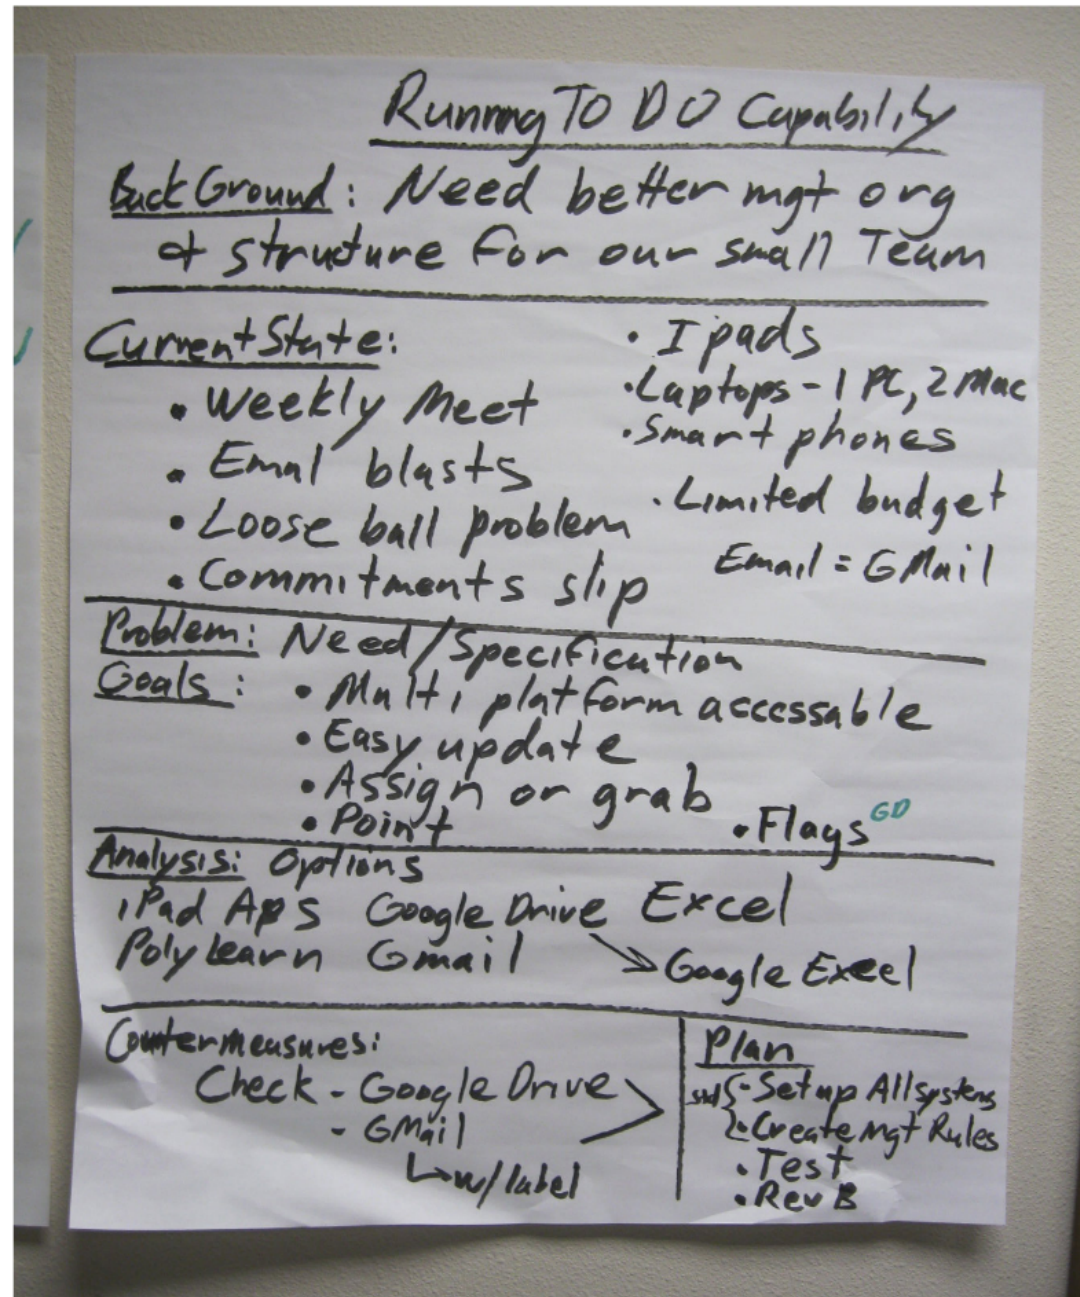 Running TO DO Capability
BackGround: Need better mgt org
& structure for our small Team
Current State:
• Weekly Meet
• Email blasts
• Loose ball problem
• Commitments slip
• Ipads
• Laptops - 1 PC, 2 Mac
• Smart phones
• Limited budget
Email = GMail
Problem: Need/Specification
Goals: • Multi platform accessable
• Easy update
• Assign or grab
• Point
• Flags GD
Analysis: Options
iPad Aps Google Drive Excel
PolyLearn Gmail → Google Excel
Countermeasures:
Check - Google Drive
- GMail
↳ w/label
Plan
• Set up All systems
• Create mgt Rules
• Test
• Rev B